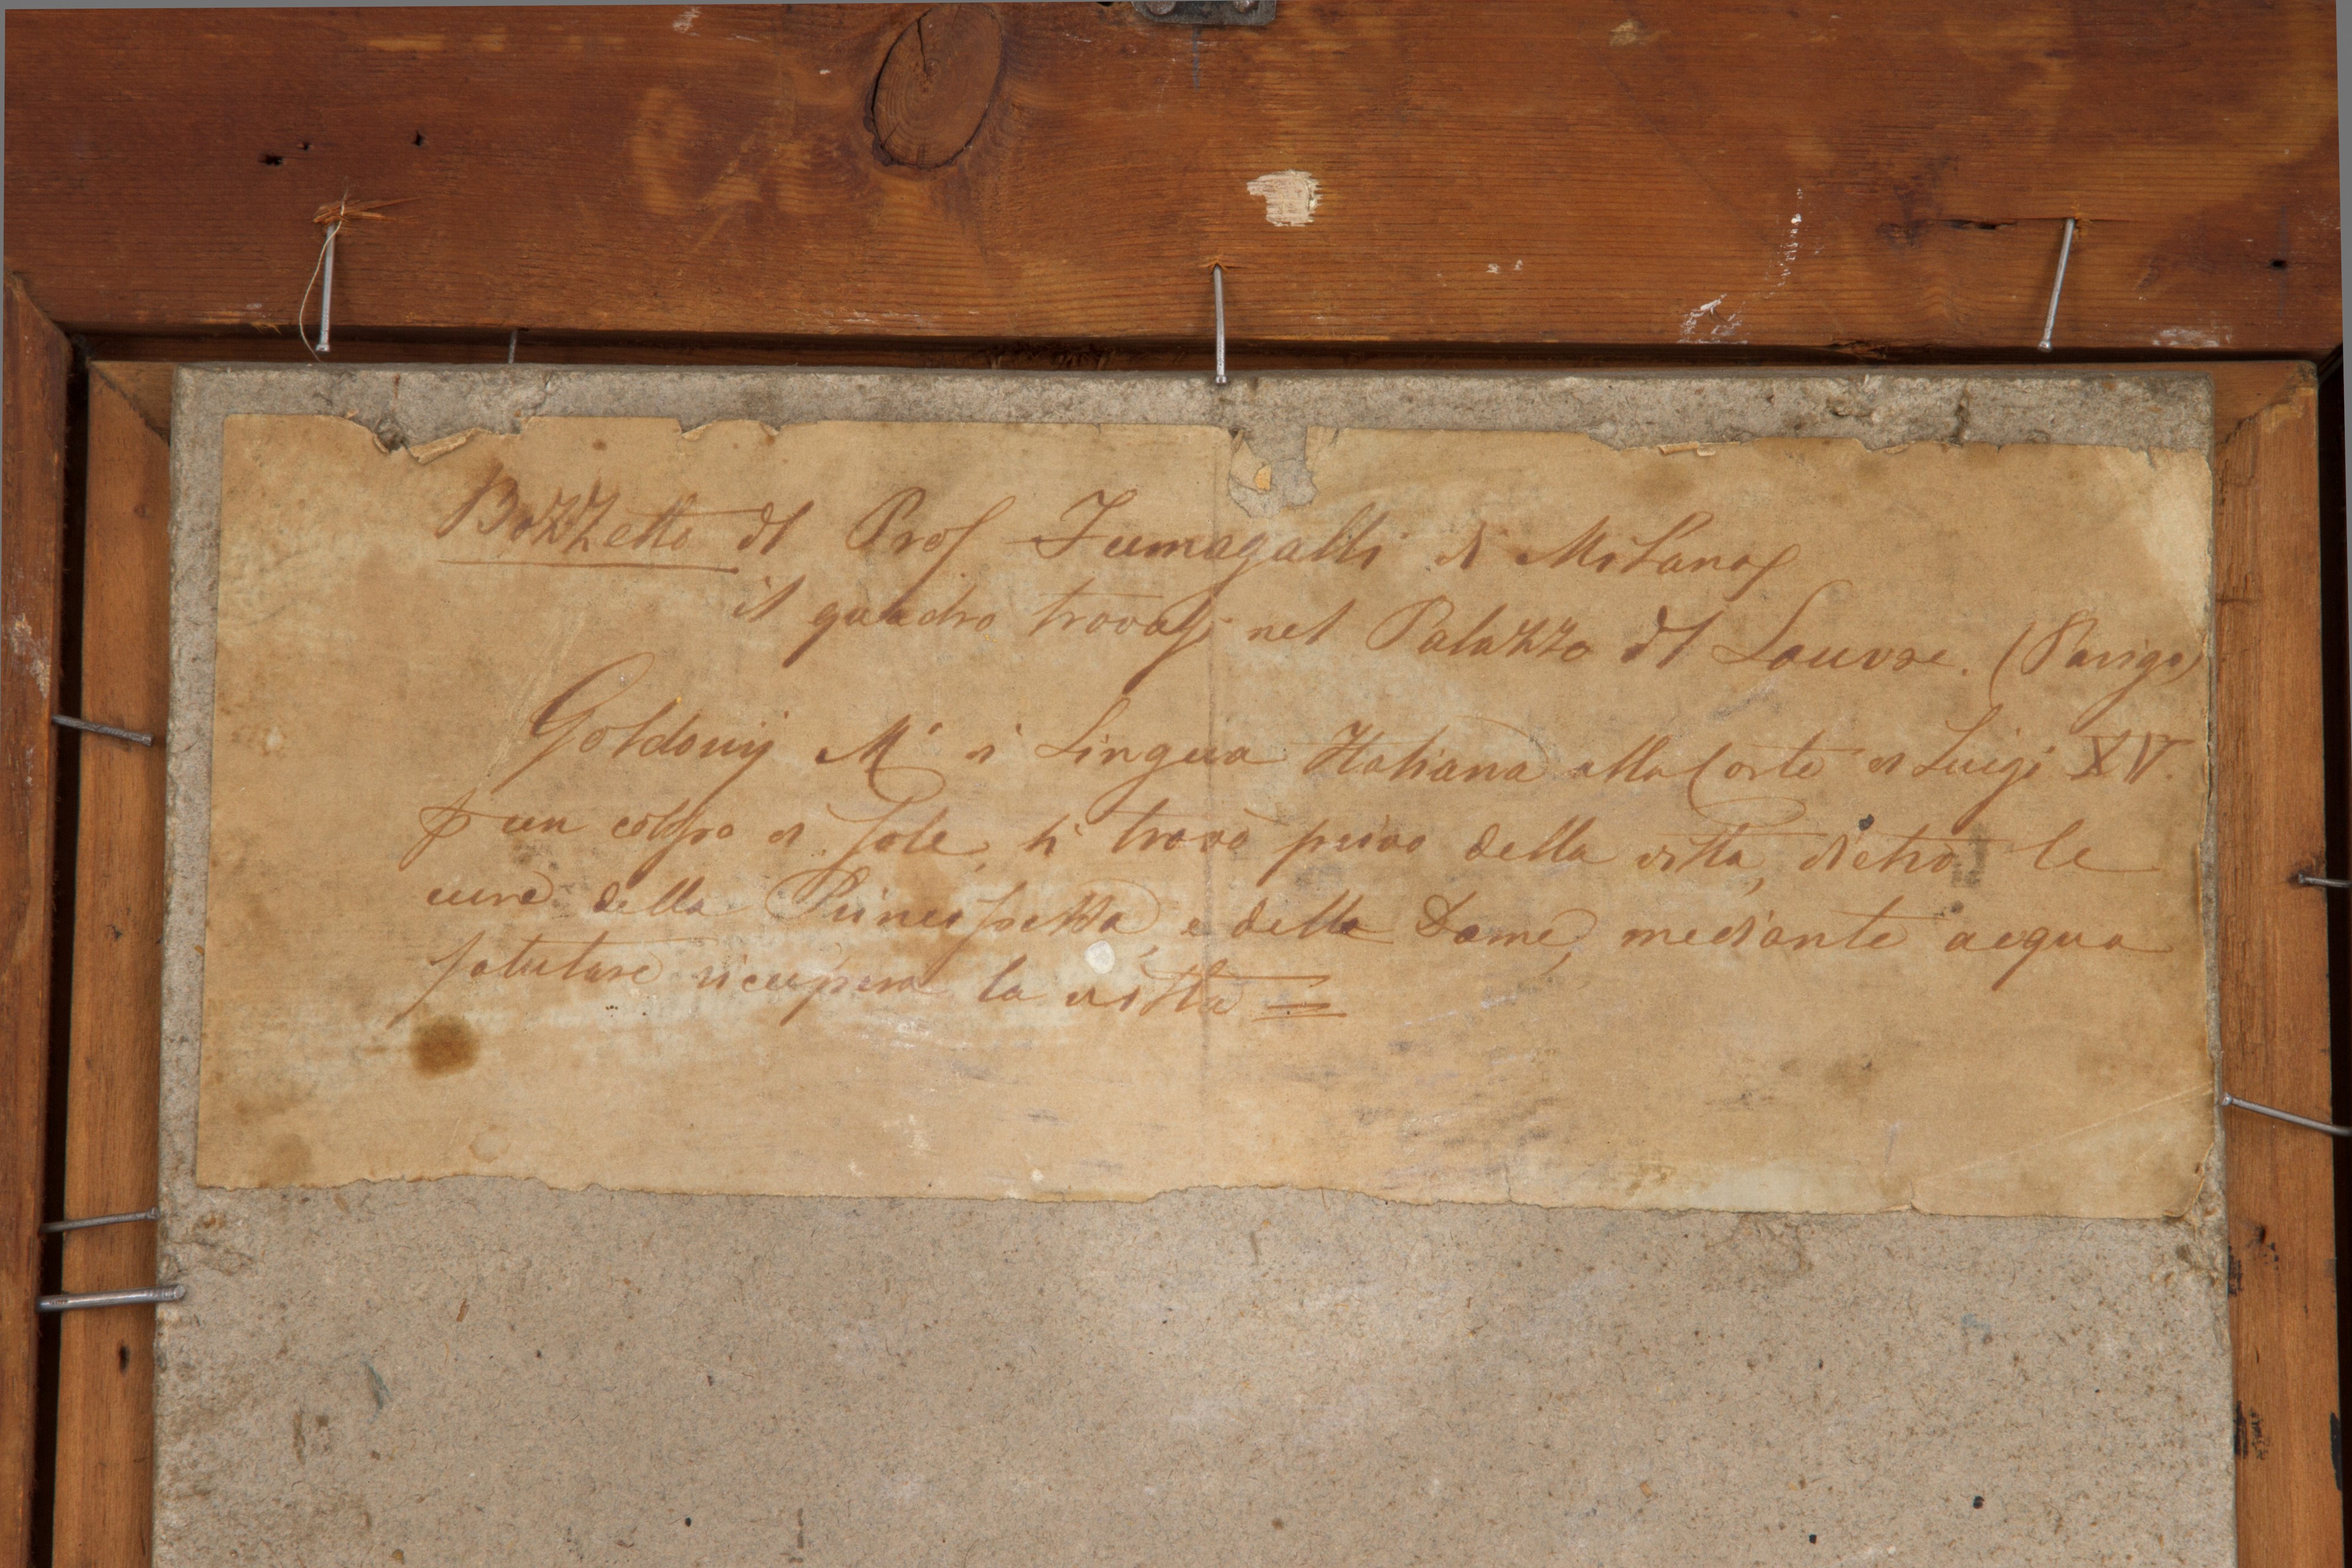 Bozzetto dl Prof Fumagalli di Milano
il quadro trovasi nel Palazzo dl Louvre. (Parigi)
Goldonij M° di Lingua Italiana alla Corte di Luigi XV.
p un colpo di Sole, si trovò privo della vista, dietro le
cure della Principessa, e delle Dame, mediante acqua
salutare ricuperò la vista =